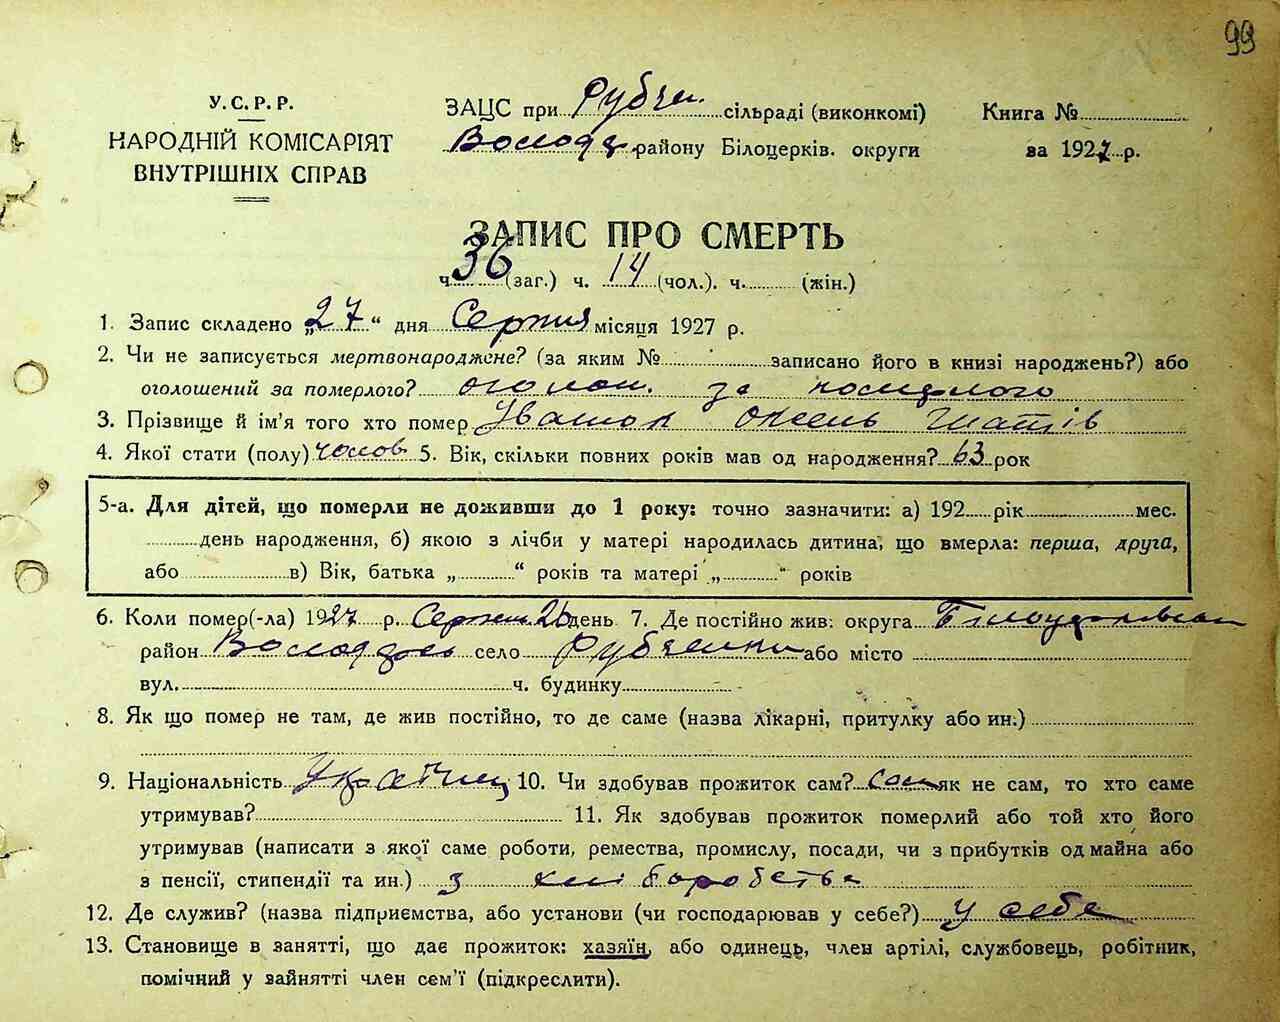 99
У.С.Р.Р.
НАРОДНІЙ КОМІСАРІЯТ
ВНУТРІШНІХ СПРАВ
ЗАЦС при Рубчен. сільраді (виконкомі)
Володар. району Білоцерків. округи
Книга №
за 1927 р.
ЗАПИС ПРО СМЕРТЬ
ч. 36 (заг.) ч. 14 (чол.). ч. (жін.)
1. Запис складено „27“ дня Серпня місяця 1927 р.
2. Чи не записується мертвонароджене? (за яким № записано його в книзі народжень?) або
оголошений за померлого? оголош. за померлого
3. Прізвище й ім'я того хто помер Івашок
4. Якої стати (полу) чолов 5. Вік, скільки повних років мав од народження? 63 рок
5-а. Для дітей, що померли не доживши до 1 року: точно зазначити: а) 192 рік мес.
день народження, б) якою з лічби у матері народилась дитина, що вмерла: перша, друга,
або в) Вік, батька „ “ років та матері „ “ років
6. Коли помер(-ла) 1927 р. Серпня 26 день 7. Де постійно жив: округа Білоцерківська
район село Рубченки або місто
вул. ч. будинку
8. Як що помер не там, де жив постійно, то де саме (назва лікарні, притулку або ин.)
9. Національність Українец 10. Чи здобував прожиток сам? сам як не сам, то хто саме
утримував? 11. Як здобував прожиток померлий або той хто його
утримував (написати з якої саме роботи, ремества, промислу, посади, чи з прибутків од майна або
з пенсії, стипендії та ин.) з хліборобства
12. Де служив? (назва підприємства, або установи (чи господарював у себе?) у себе
13. Становище в занятті, що дає прожиток: хазяїн, або одинець, член артілі, службовець, робітник,
помічний у зайнятті член сем'ї (підкреслити).